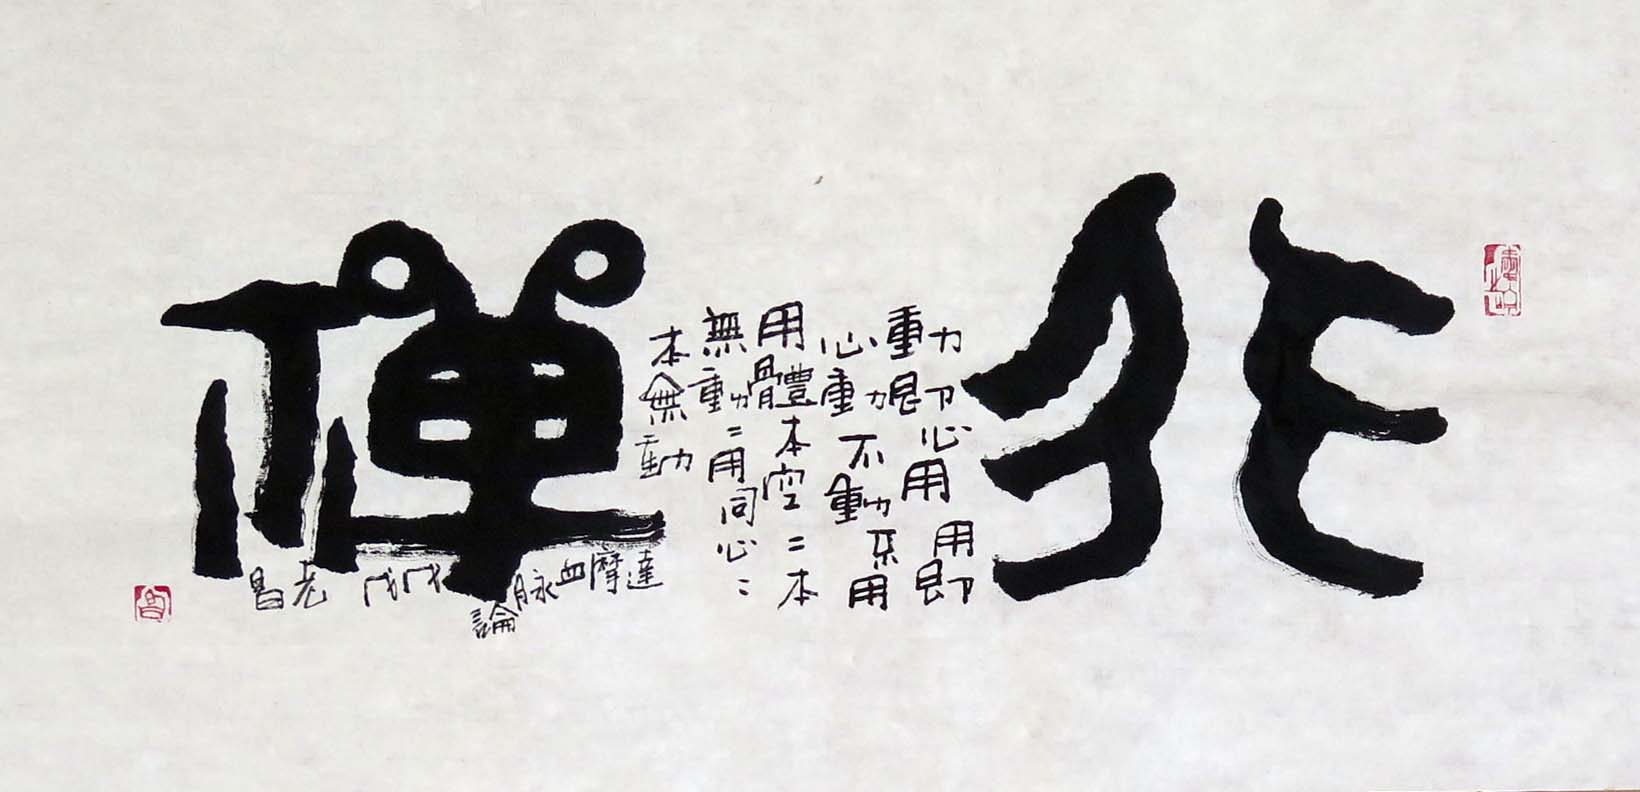 非禪
動即心用用即
心動不動不用
用體本空〻本
無動〻用同心〻
本無動
達摩血脉論
戊戌
老昌